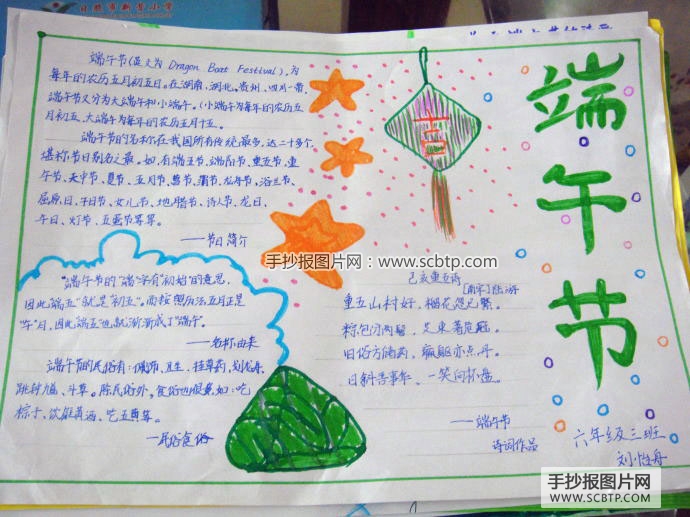 日照市新营小学
端午节
端午节(英文为 Dragon Boat Festival),为
每年的农历五月初五日。在湖南、湖北、贵州、四川一带,
端午节又分为大端午和小端午。(小端午为每年的农历五
月初五、大端午为每年的农历五月十五。
端午节的名称在我国所有传统最多,达二十多个,
堪称节日别名之最。如,有端五节、端阳节、重五节、重
午节、天中节、夏节、五月节、菖节、蒲节、龙舟节、浴兰节、
屈原日、午日节、女儿节、地腊节、诗人节、龙日、
午日、灯节、五蛋节等等。
——节日简介
"端午节"的"端"字有"初始"的意思,
因此"端五"就是"初五"。而按照历法五月正是
"午"月,因此"端五"也就渐渐成了"端午"。
——名称由来
端午节的民俗有:佩饰、卫生、挂草药、划龙舟、
跳钟馗、斗草。除民俗外,食俗也很多,如:吃
粽子、饮雄黄酒、吃五毒等。
——民俗食俗
己亥重五诗
[南宋]陆游
重五山村好,榴花忽已繁。
粽包分两髻,艾束著危冠。
旧俗方储药,羸躯亦点丹。
日斜吾事毕,一笑向杯盘。
——端午节
诗词作品
六年级三班
刘怡舟
手抄报图片网
www.scbtp.com
手抄报图片网
WWW.SCBTP.COM